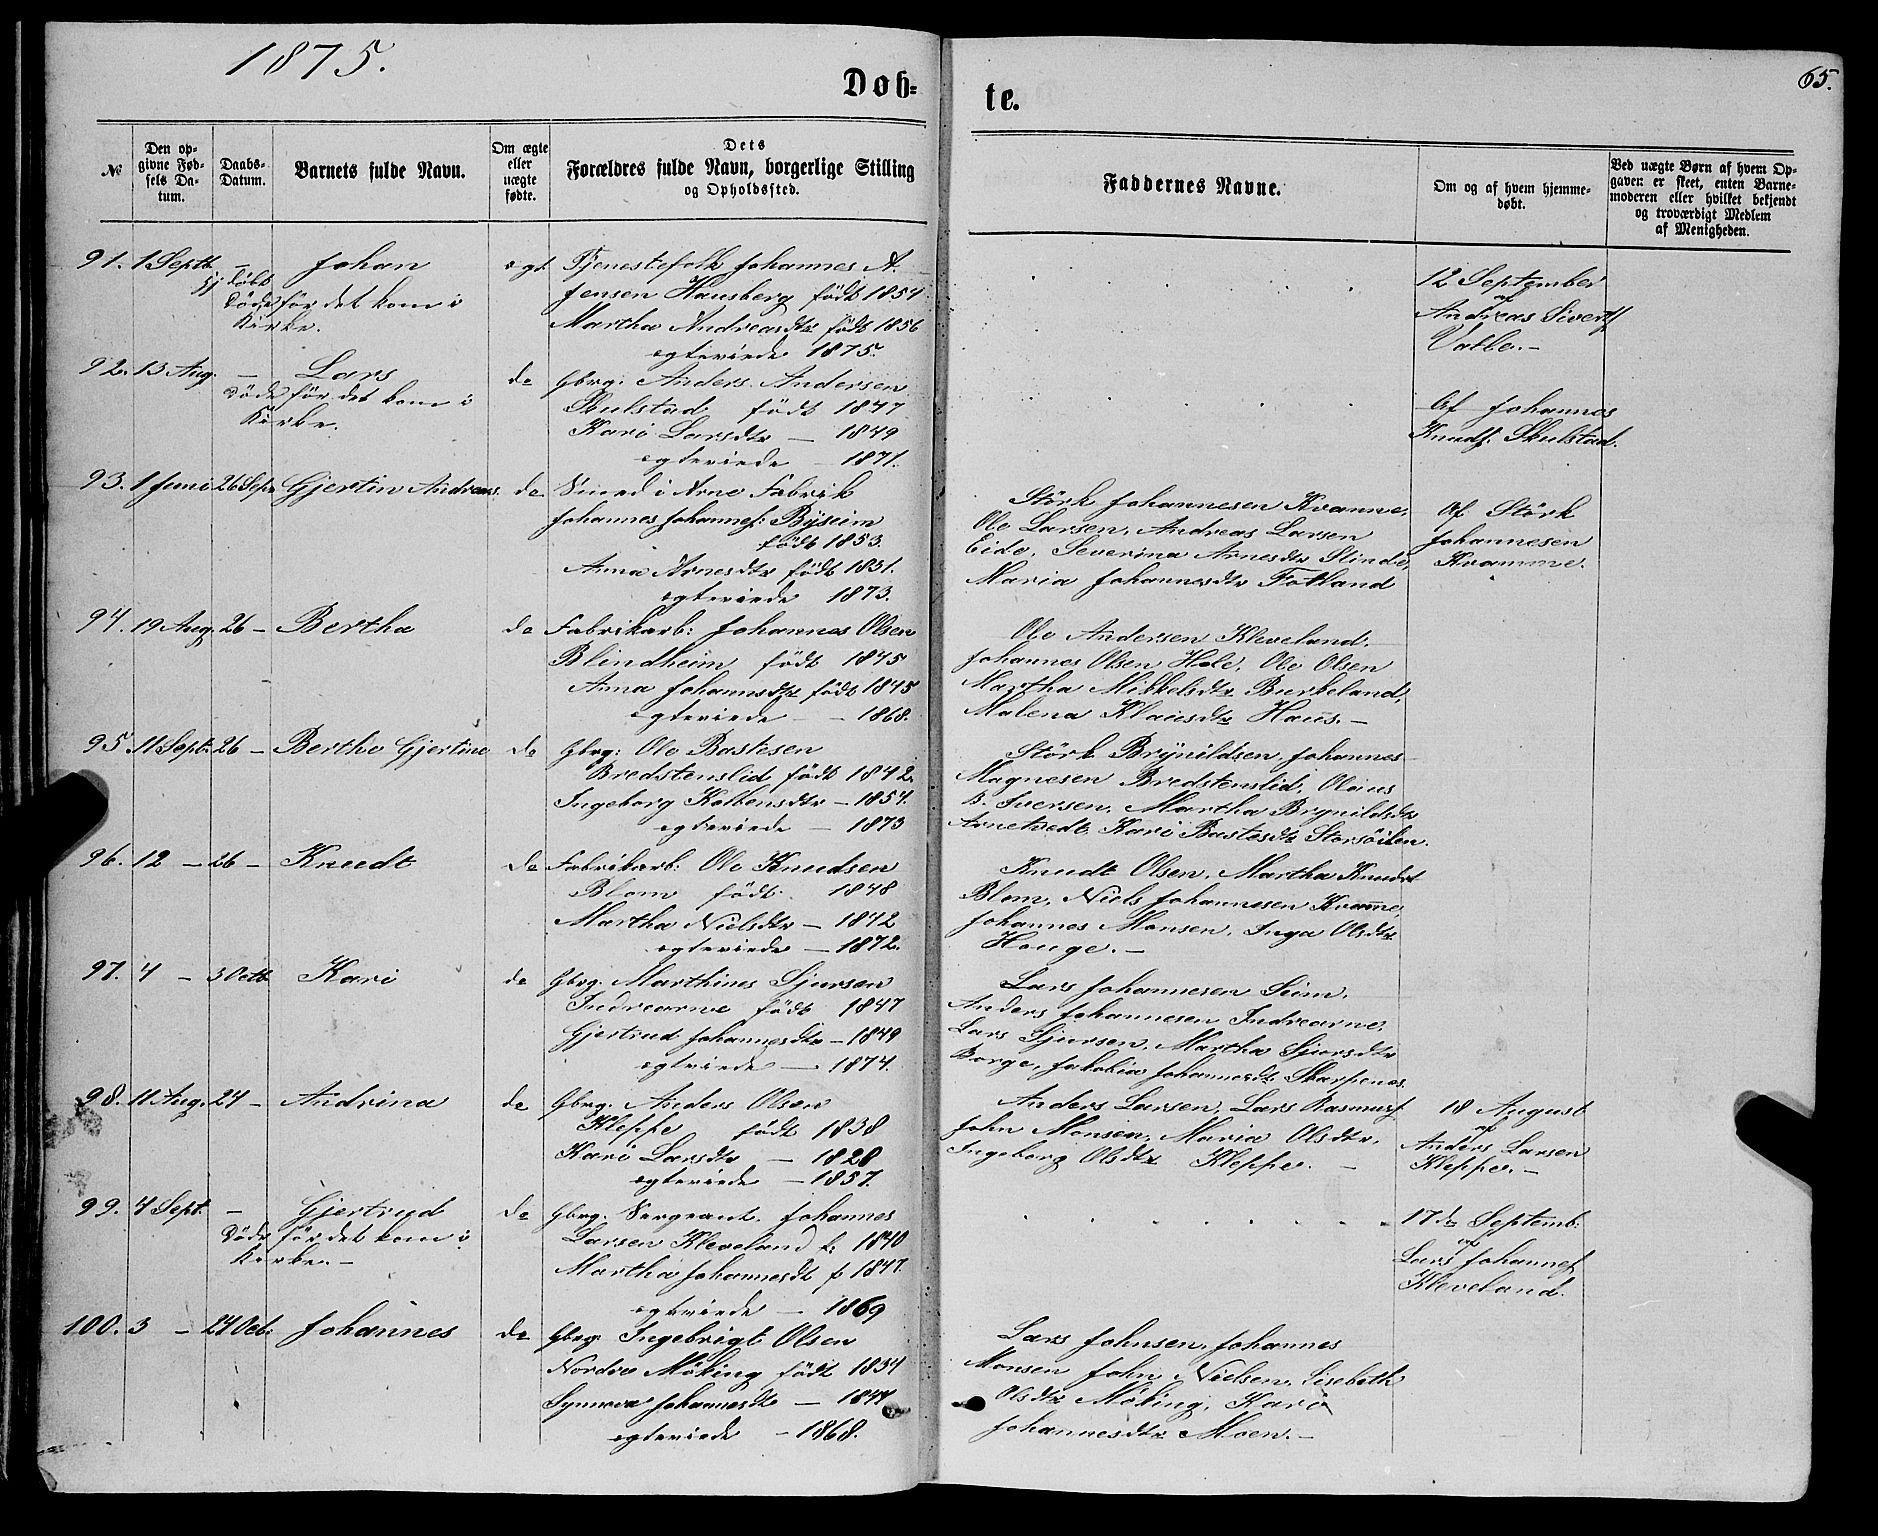 1875.
Døb=
te.
65.
№
Den op-
givne Fød-
sels Da-
tum.
Daabs-
Datum.
Barnets fulde Navn.
Om ægte
eller
uægte
fødte.
Dets
Forældres fulde Navn, borgerlige Stilling
og Opholdsfted.
Faddernes Navne.
Om og af hvem hjemme-
døbt.
Ved uægte Børn af hvem Op-
gaven er skeet, enten Barne-
moderen eller hvilket bekjendt
og troværdigt Medlem
af Menigheden.
91. 1 Septb. — Johan ægt. Tjenestefolk Johannes A.
døbt
Døde før det kom i
Kirke.
Jensen Hausberg født 1854
Martha Andreasdtr født 1856
egteviede 1875.
12 September
af
Andreas Siverts
Valle. —
92. 13 Aug. — Lars do Gbrg. Anders Andersen
Døde før det kom i
Kirke.
Skulstad født 1847
Kari Larsdtr — 1849
egteviede — 1871.
Af Johannes
Knuds. Skulstad.
93. 1 Juni 26 Sepr Gjertin Andreas. do Smed i Arne Fabrik
Johannes Johannes: Byseim
født 1853.
Anna Arnesdtr født 1851.
egteviede 1873.
Störk Johannesen Kvamme,
Ole Larsen, Andreas Larsen
Eide, Severina Arnesdtr Slinde,
Maria Johannesdtr Fotland
Af Störk
Johannesen
Kvamme.
94. 19 Aug. 26 — Bertha do Fabrikarb: Johannes Olsen
Blindheim født 1845
Anna Johannsdtr født 1845
egteviede — 1868.
Ole Andersen Kleveland.
Johannes Olsen Hole, Ole Olsen
Martha Mikkelsdtr Burkeland,
Malena Klausdtr Haus. —
95 11 Sept: 26 — Berthe Gjertine do Gbrg: Ole Bastesen
Bredstenslid født 1842.
Ingeborg Kolbensdtr — 1854.
egteviede — 1873
Störk Brynildsen, Johannes
Magnesen Bredstenslid, Olaus
B. Iversen, Martha Brynildsdtr
Arnetvedt, Kari Bastesdtr Storsöilen.
96. 12 — 26 — Knudt do Fabrikarb: Ole Knudsen
Blom født 1848
Martha Nielsdtr — 1842
egteviede — 1872.
Knudt Olsen, Martha Knudst
Blom, Niels Johannesen Kvamme,
Johannes Monsen, Inga Olsdtr
Houge. —
97. 4 — 3 Octb Kari do Gbrg. Marthines Sjursen
Indrearne født 1847
Gjertrud Johannesdtr — 1849
egteviede — 1874.
Lars Johannesen Seim,
Anders Johannesen Indrearne,
Lars Sjursen, Martha Sjursdtr
Borge, Jakobia Johannesdt Skarpenes.
98. 11 Aug. 24 — Andrina do Gbrg. Anders Olsen
Kleppe født 1838
Kari Larsdtr — 1828
egteviede — 1857.
Anders Larsen, Lars Rasmuss
John Monsen, Maria Olsdtr,
Ingeborg Olsdtr Kleppe. —
18 August
af
Anders Larsen
Kleppe. —
99. 4 Sept. — Gjertrud do Gbrg. Sergeant. Johannes
Døde før det kom i
Kirke. —
Larsen Kleveland f. 1840
Martha Johannesdt f 1847.
egteviede — 1869
17de Septemb.
af
Lars Johannes
Kleveland.
100. 3 — 24 Oct: Johannes do Gbrg. Ingebrigt Olsen
Nordre Möking født 1834
Synneva Johannesdt — 1844
egteviede — 1868.
Lars Johnsen, Johannes
Monsen John Nielsen, Lisebeth
Olsdtr Möking, Kari
Johannesdtr Moen. —